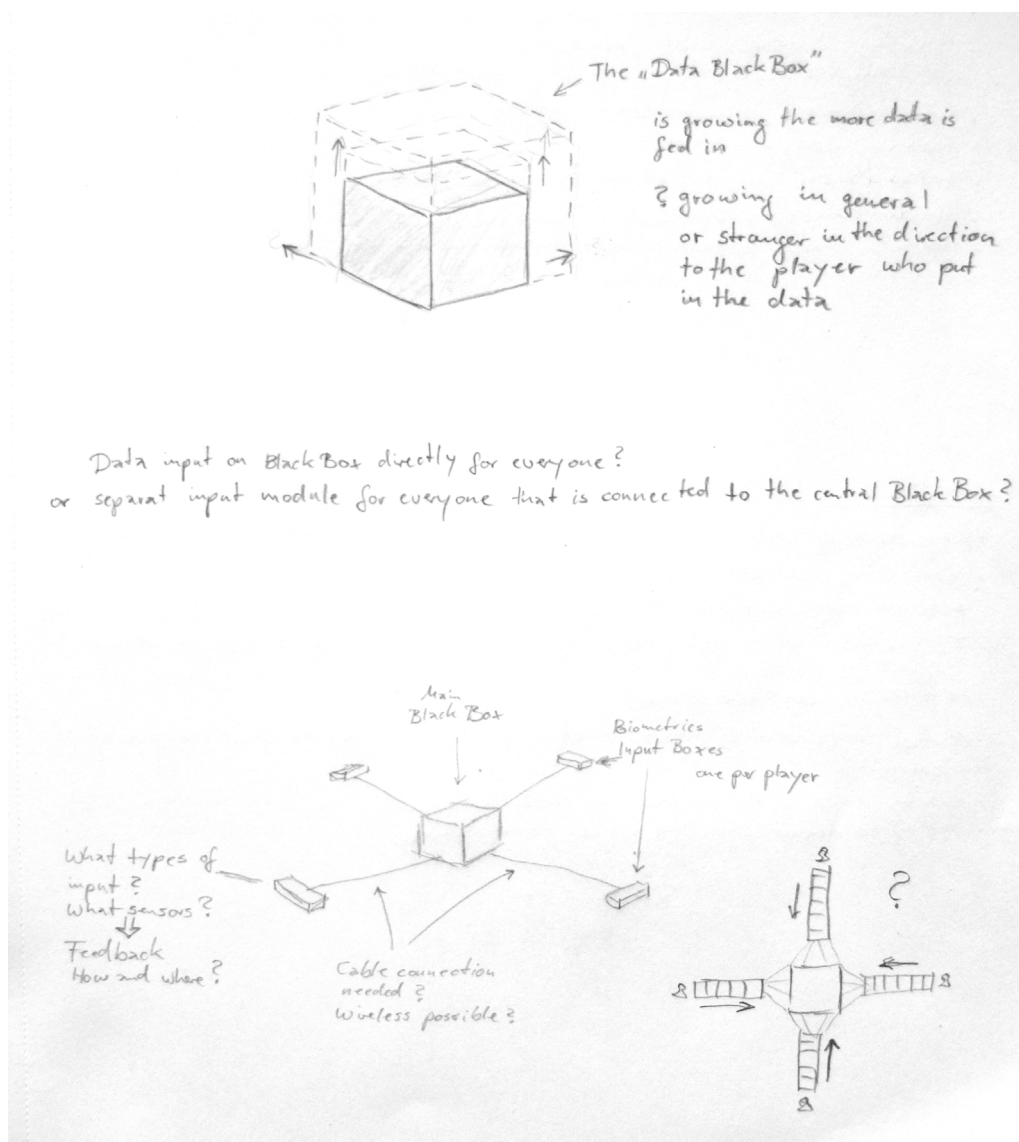 The „Data BlackBox"
is growing the more data is
fed in
? growing in general
or stranger in the direction
to the player who put
in the data
Data input on BlackBox directly for everyone?
or separat input module for everyone that is connected to the central BlackBox?
Main
Black Box
Biometrics
Input Boxes
one per player
What types of
input?
What sensors?
Feedback
How and where?
Cable connection
needed?
Wireless possible?
?